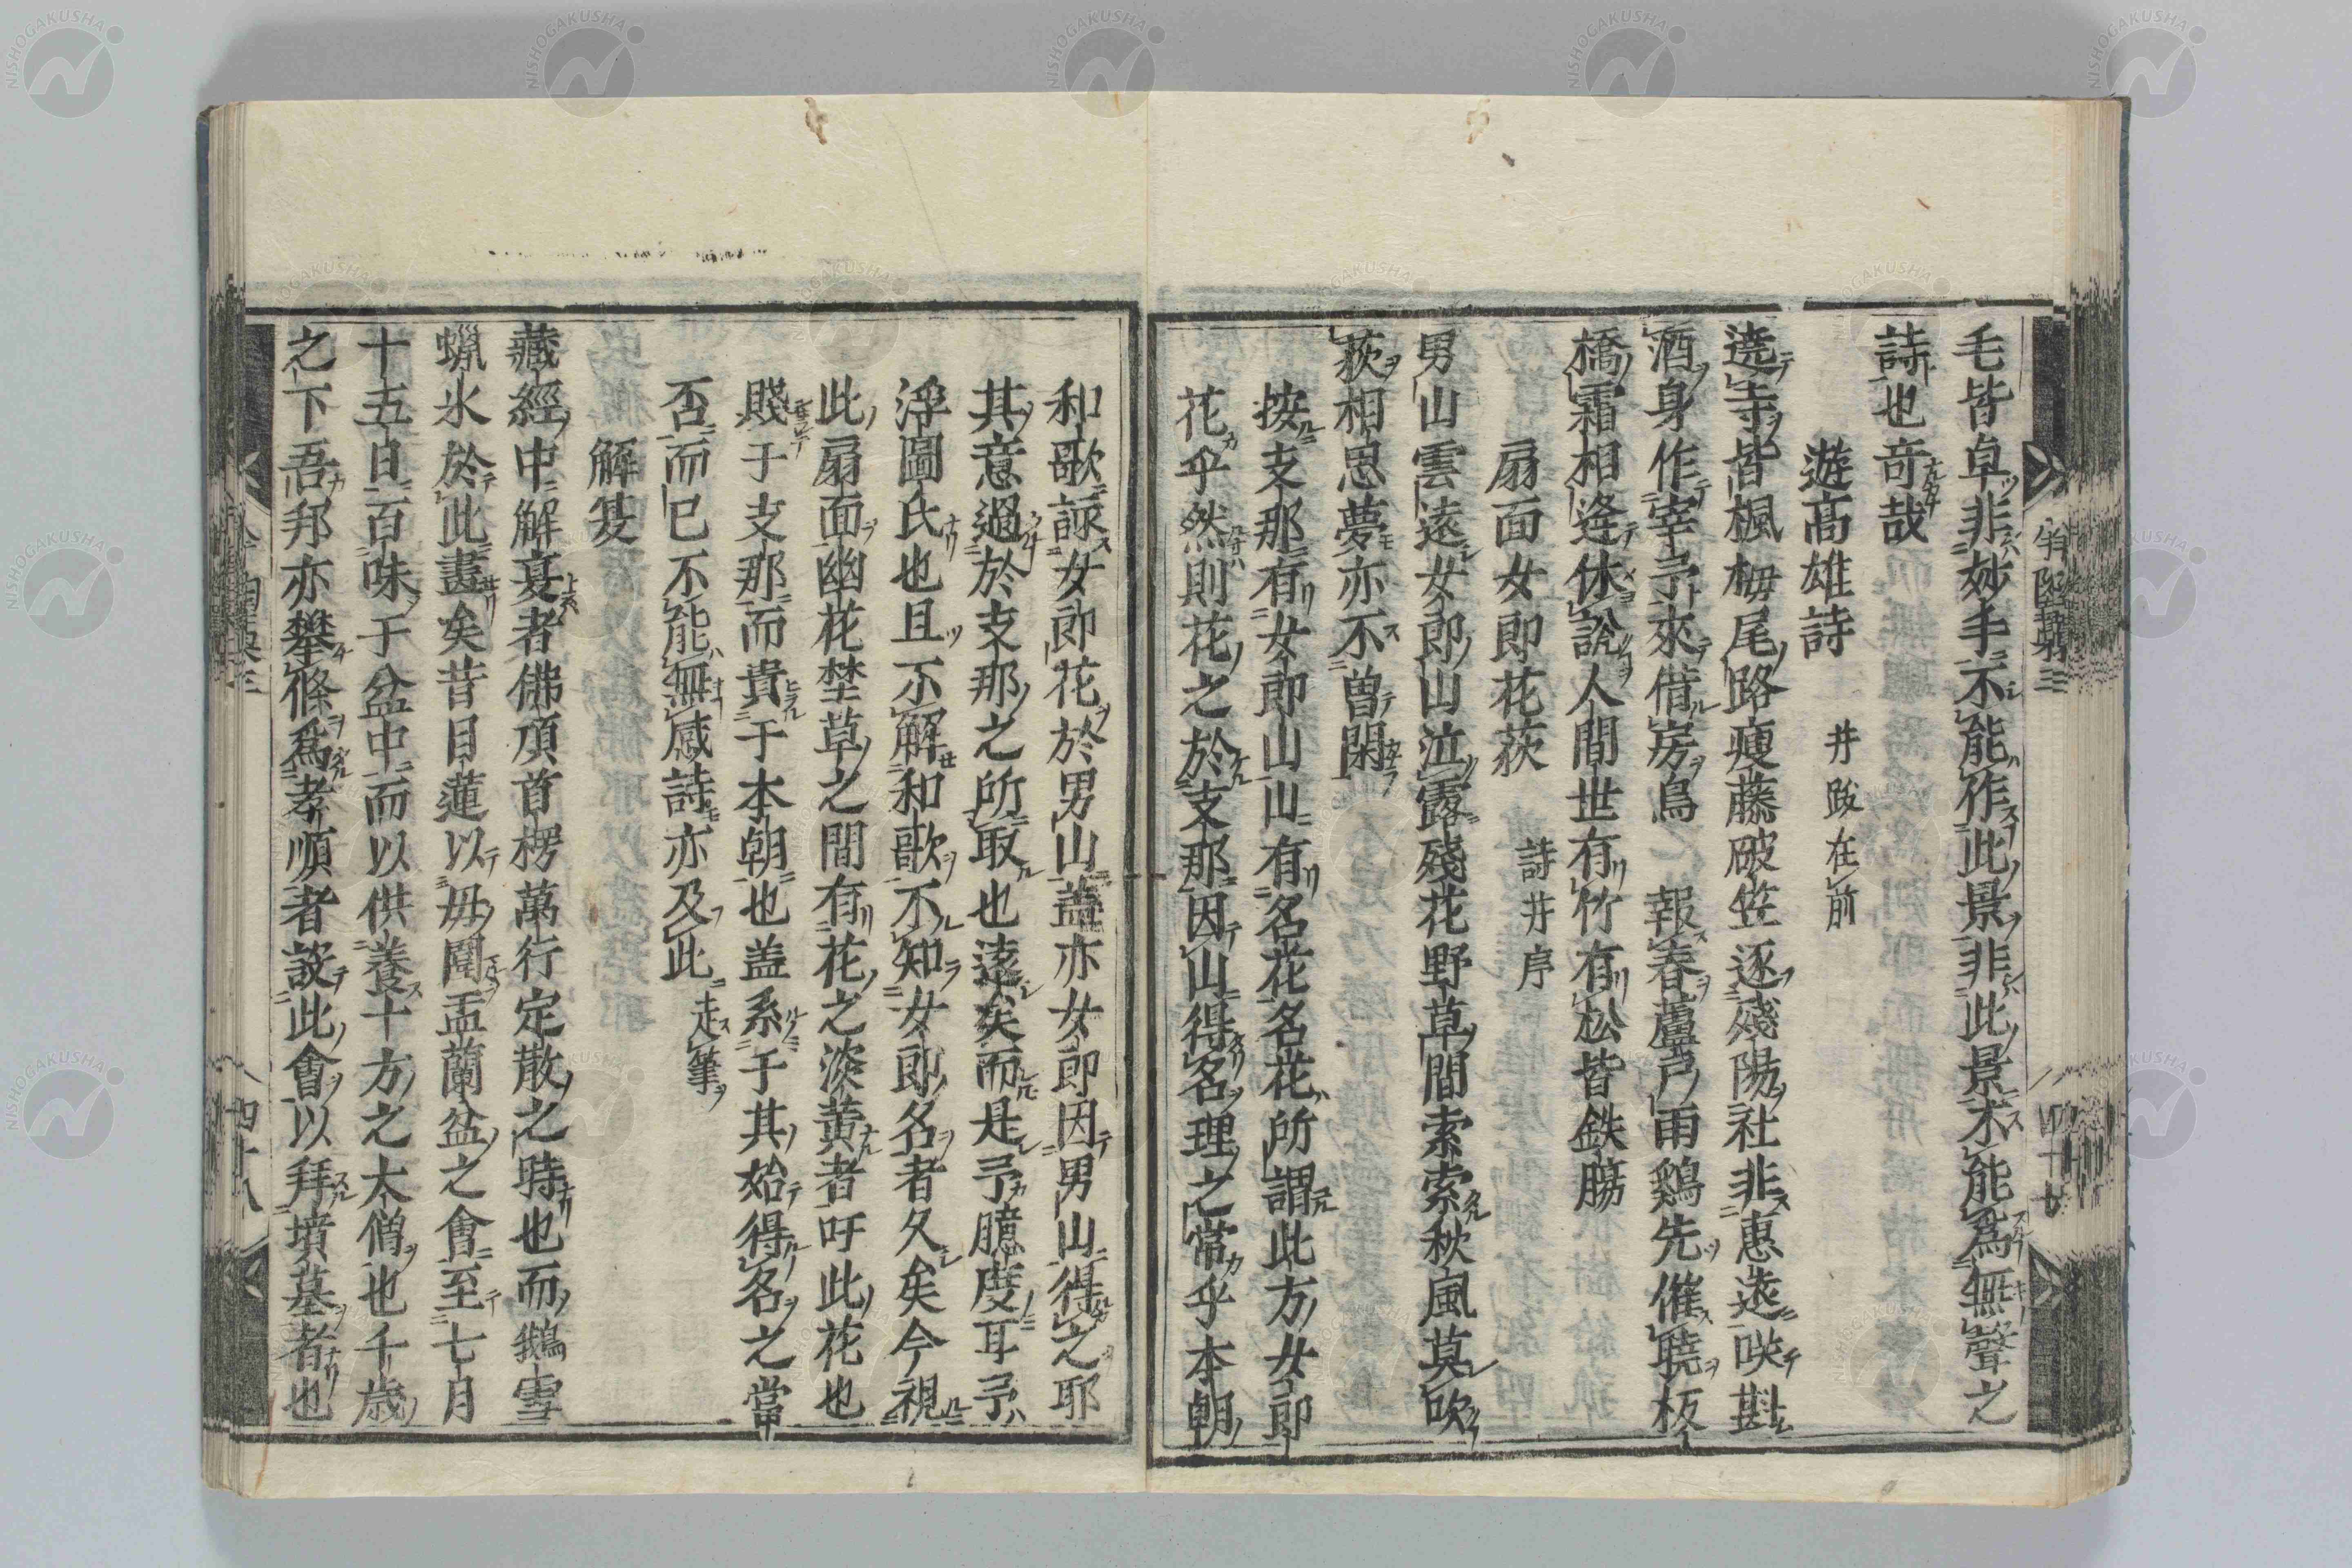 毛皆卓非妙手不能作此景非此景不能為無聲之
詩也奇哉
遊高雄詩　井跋在前
遶寺皆楓栂尾路瘦藤破笠逐殘陽社非惠遠咲斟
酒身作宰予來借房鳥　報春蘆戸雨鷄先催曉板
橋霜相逢休說人間世有竹有松皆鉄膓
扇面女郎花萩　詩井序
男山雲遠女郎山泣露殘花野草間索索秋風莫吹
萩相思夢亦不曽閑
按支那有女郎山山有名花名花所謂此方女郎
花乎然則花之於支那因山得名理之當乎本朝
和歌詠女郎花於男山蓋亦女郎因男山得之耶
其意過於支那之所取也遠矣而是予臆度耳予
浮圖氏也且不解和歌不知女郎名者久矣今視
此扇面幽花埜草之間有花之淡黄者吁此花也
賤于支那而貴于本朝也盖系于其始得名之當
否而已不能無感詩亦及此　走筆
解夏
藏經中解夏者佛頂首楞萬行定散之時也而鵝雪
蠟氷於此盡矣昔目蓮以毋聞盂蘭盆之會至七月
十五日百味于盆中而以供養十方之大僧也千歳
之下吾邦亦攀條爲孝順者設此會以拜墳墓者也
四十八